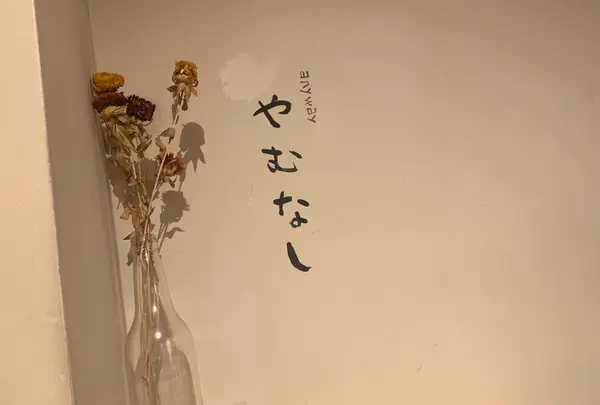 anyway
やむなし